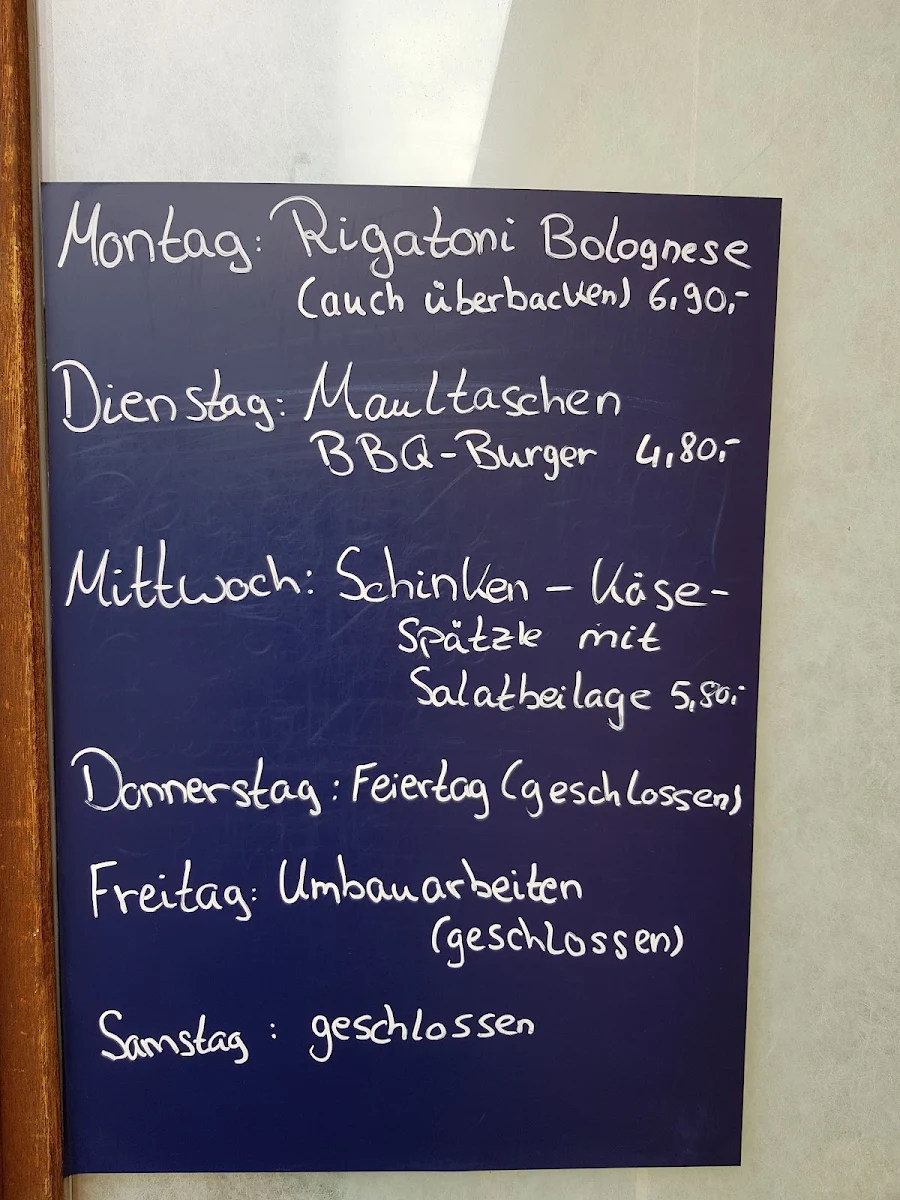 Montag: Rigatoni Bolognese
(auch überbacken) 6,90,-
Dienstag: Maultaschen
BBQ-Burger 4,80,-
Mittwoch: Schinken - Käse-
Spätzle mit
Salatbeilage 5,80,-
Donnerstag: Feiertag (geschlossen)
Freitag: Umbauarbeiten
(geschlossen)
Samstag: geschlossen